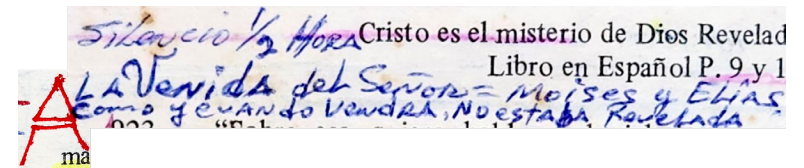 Silencio 1/2 Hora Cristo es el misterio de Dios Revelad
Libro en Español P. 9 y 1
LA Venida del Señor = Moises y ELÍAS
Como y cuando vendra, No estaba Revelada
A
ma